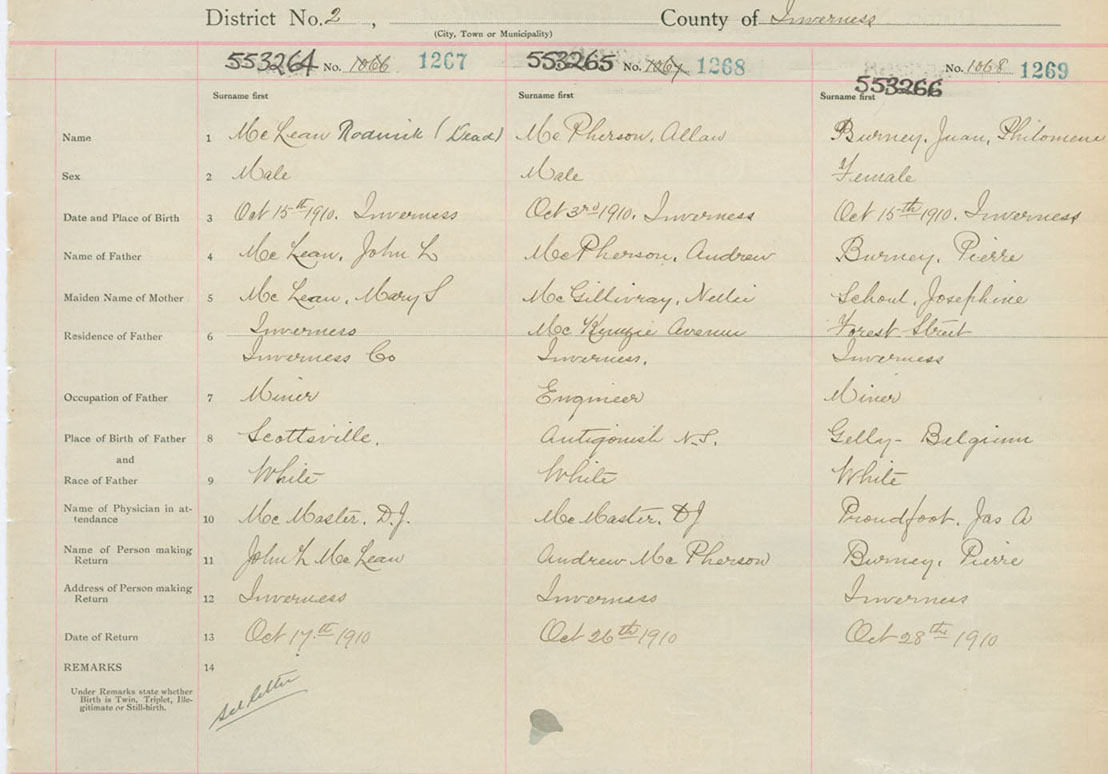 District No. 2, County of Inverness
(City, Town or Municipality)
553264 No. 1066 1267 553265 No. 1067 1268 No. 1068 1269
553266
Surname first Surname first Surname first
Name 1 McLean Roderick (Dead) McPherson, Allan Burney, Juan, Philomene
Sex 2 Male Male Female
Date and Place of Birth 3 Oct 15th 1910. Inverness Oct 3rd 1910. Inverness Oct 15th 1910. Inverness
Name of Father 4 McLean, John L McPherson, Andrew Burney, Pierre
Maiden Name of Mother 5 McLean, Mary S McGillivray, Nellie Schoul, Josephine
Residence of Father 6 Inverness McKenzie Avenue Forest Street
Inverness Co Inverness. Inverness
Occupation of Father 7 Miner Engineer Miner
Place of Birth of Father 8 Scottsville. Antigonish N.S. Gelly - Belgium
and
Race of Father 9 White White White
Name of Physician in at-
tendance 10 McMaster, D.J. McMaster, DJ Proudfoot, Jas A
Name of Person making
Return 11 John L McLean Andrew McPherson Burney, Pierre
Address of Person making
Return 12 Inverness Inverness Inverness
Date of Return 13 Oct 17th 1910 Oct 26th 1910 Oct 28th 1910
REMARKS 14
Under Remarks state whether
Birth is Twin, Triplet, Ille-
gitimate or Still-birth.
see letter